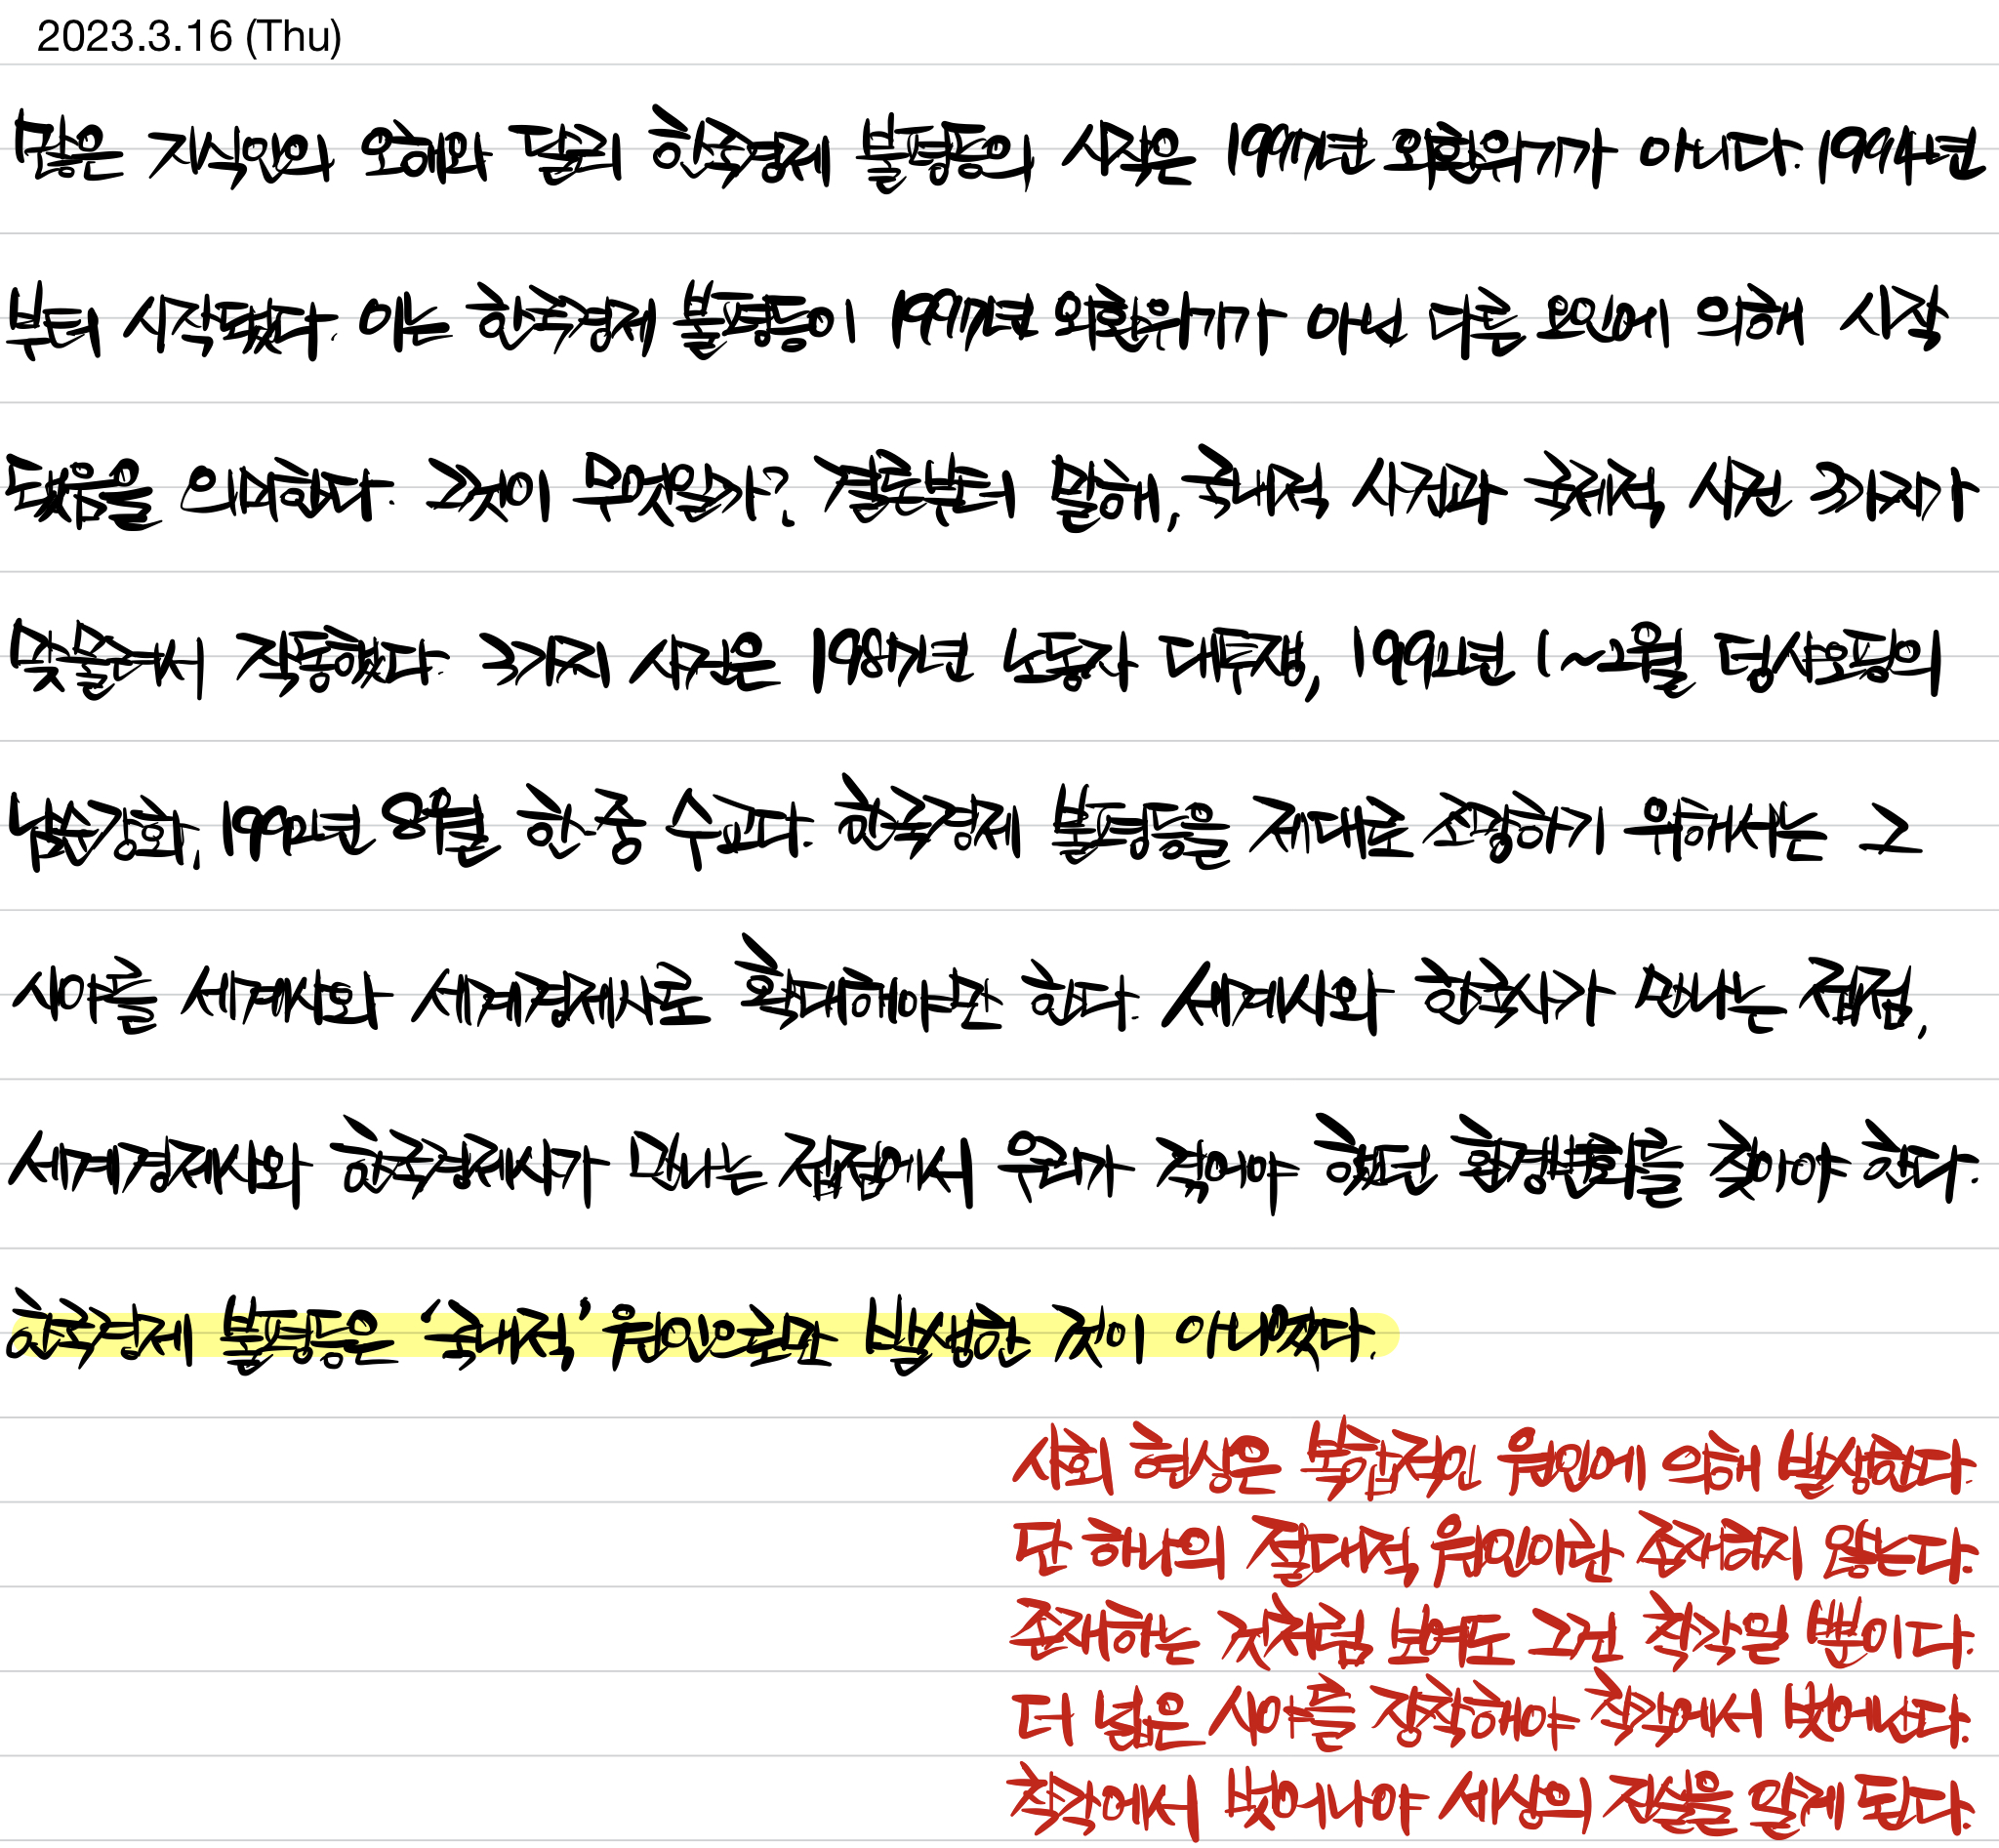 2023.3.16 (Thu)
많은 지식인의 오해와 달리 한국경제 불평등의 시작은 1997년 외환위기가 아니다. 1994년
부터 시작됐다. 이는 한국경제 불평등이 1997년 외환위기가 아닌 다른 요인에 의해 시작
됐음을 의미한다. 그것이 무엇일까? 결론부터 말해, 국내적 사건과 국제적 사건 3가지가
맞물려서 작동했다. 3가지 사건은 1987년 노동자 대투쟁, 1992년 1~2월 덩샤오핑의
남순강화, 1992년 8월 한·중 수교다. 한국경제 불평등을 제대로 조망하기 위해서는 그
시야를 세계사와 세계경제사로 확대해야만 한다. 세계사와 한국사가 만나는 접점,
세계경제사와 한국경제사가 만나는 접점에서 우리가 직면해야 했던 환경변화를 찾아야 한다.
한국경제 불평등은 ‘국내적’ 원인으로만 발생한 것이 아니었다.
사회 현상은 복합적인 원인에 의해 발생한다.
단 하나의 절대적 원인이란 존재하지 않는다.
존재하는 것처럼 보여도 그건 착각일 뿐이다.
더 넓은 시야를 장착해야 착각에서 벗어난다.
착각에서 벗어나야 세상의 진실을 알게 된다.